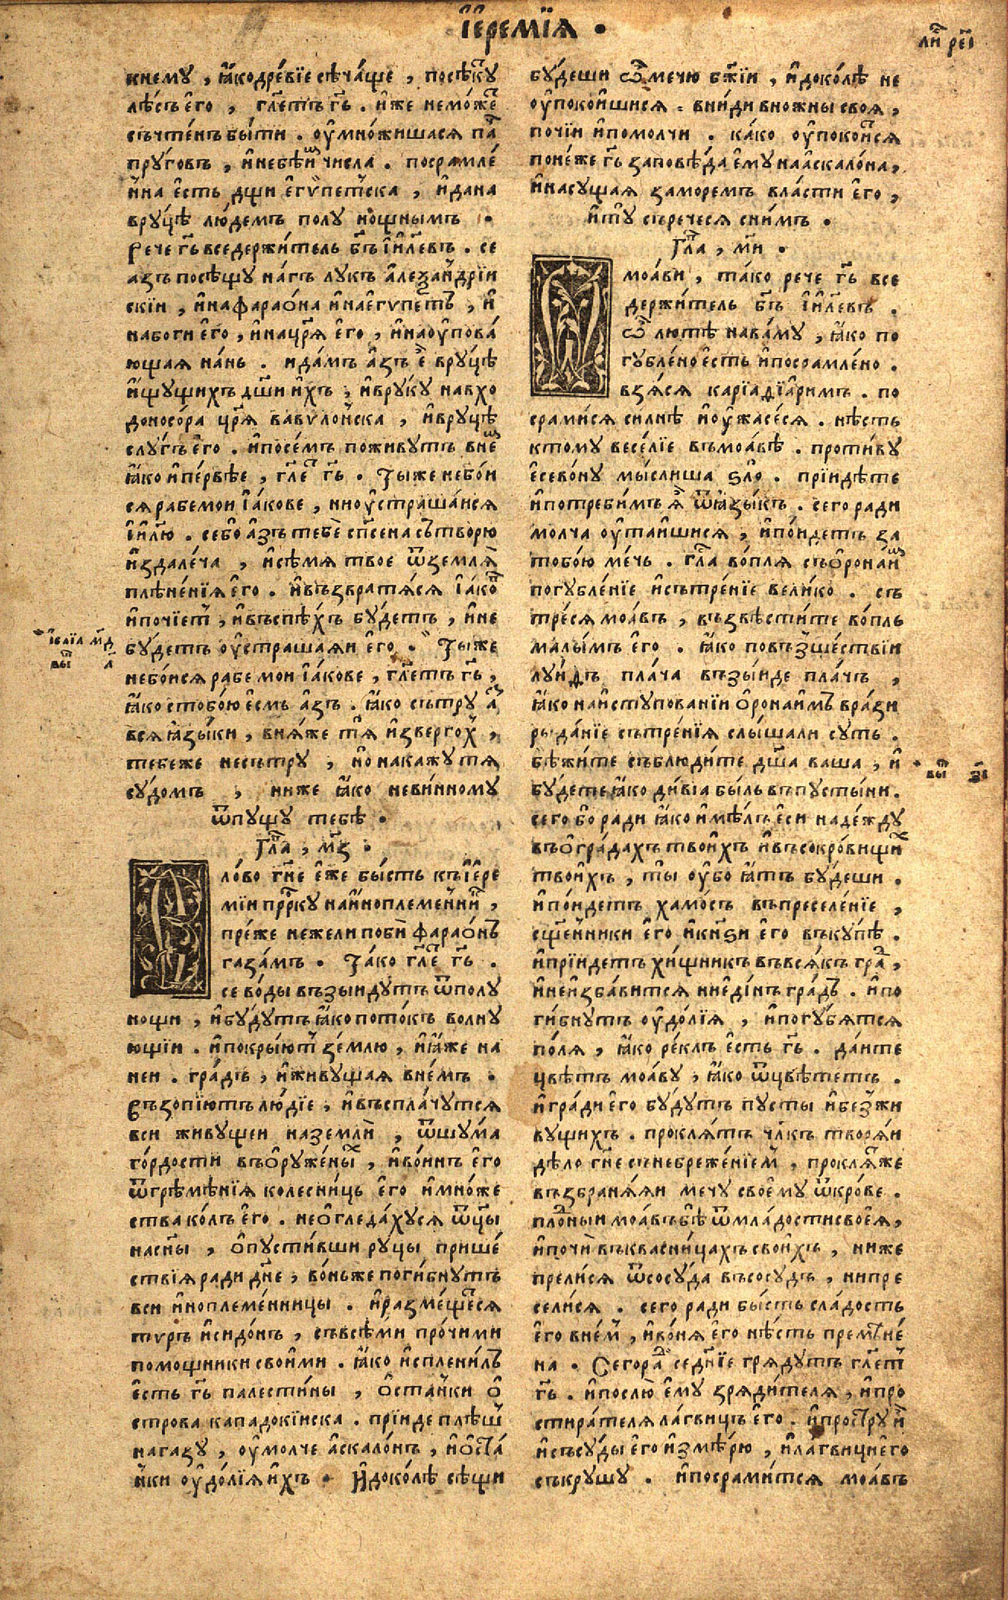 І҆еремі́ѧ .
ли҇ рє҃і
кнемꙋ , ꙗ҆́кодре́вїе сѣча́ще , посѣкꙋ҇
лѣ́съ е҆го̀ , гл҃етъ гь҃ . и҆́же немо́же҇
съчте́нъ бы́ти . оу҆мно́жишасѧ па҇
прꙋговъ , и҆небѣи҇ числа̀ . посрамле́
н̾на е҆сть дщи е҆гѵ́петска , и҆дана
врꙋцѣ̀ лю́демъ полꙋ но́щнымъ .
Рече гь҃ вседержи́тель бг҃ъ і҆и҃левъ . се
азъ посѣщꙋ нанъ лꙋкъ а҆леѯандрїи
скїи , и҆нафарао́на и҆наегѵ́петъ , и҆
набоги е҆го̀ , и҆нацр҃ѧ е҆го̀ , и҆наоупова́
ющаѧ на́нь . идамъ а҆́зъ е҆̀ врꙋцѣ̀
и҆́щꙋщихъ дш҃и и҆́хъ , и҆врꙋкꙋ навхо
доносо́ра цр҃ѧ вавѵло́нска , и҆врꙋцѣ
слꙋгъ е҆го̀ . и҆посе́мъ поживꙋтъ вне҇
ꙗ҆́ко и҆пе́рвѣе , гл҃е҇ гь҃ . Ты́же небо́и
сѧ рабе мои і҆а́кове , нио҆устраша́исѧ
і҆и҃лю . себо а҆́зъ тебѐ сп҃сена сътворю
и҆здале́ча , и҆сѣмѧ твое ѿземлѧ̀
плѣне́нїѧ е҆го . и҆възврати́сѧ і҆а́ко҇
и҆почїе́т , и҆въспѣ́хъ бꙋ́детъ , и҆не
бꙋ́детъ оу҆страшаѧи е҆го̀ . Ты́же
небо́исѧ рабе мои і҆а́кове , гл҃етъ гь҃ ,
ꙗ҆́ко стобо́ю е҆смь а҆́зъ . ꙗ҆́ко сътрꙋ а҇
всѧ ꙗ҆зы́ки , внѧ́же тѧ̀ извергох ,
тебеже несътрꙋ , но накажꙋ тѧ
сꙋдомъ , ниже ꙗ҆ко невинномꙋ
ѿпꙋщꙋ тебѣ .
Гла҇ , мз҃ .
Сло́во гн҃е е҆́же бы́сть къі҆ере
мїи пр҇ркꙋ наи҆ноплеменникѝ ,
пре́же нежели побѝ фарао́нъ
газа́мъ . Та́ко гл҃е҇ гь҃ .
се во́ды възы́идꙋтъ ѿполꙋ
нощи , и҆бꙋ́дꙋтъ ꙗ҆ко пото́къ волнꙋ
ющїи . и҆покрыю́т зе́млю , и҆ꙗ҆́же на
неи . гра́дъ , и҆живꙋщаѧ вне́мъ .
Възопїю́тъ лю́дїе , и҆въспла́чꙋтсѧ
вси живꙋщеи наземлѝ , ѿшꙋма
го́рдости въо҆рꙋжены҇ , и҆во́инъ е҆го
ѿгрѣмѣ́нїѧ колесни́ць е҆го и҆мно́же
ства ко́лъ е҆го . нео҆гледа́хꙋсѧ ѿцы̀
насн҃ы , о҆пꙋсти́вши рꙋцы прише́
ствїѧ ради дн҃е , во́ньже поги́бнꙋтъ
вси и҆ноплеме́нницы . и҆разме́щ҇есѧ
тѵръ и҆сидо́нъ , съвсѣ́ми про́чими
помощники свои́ми . ꙗ҆́ко и҆сплени́лъ
е҆сть гь҃ палестины , о҆ста́нки о҆
строва кападокїиска . прїиде плѣш
нагазꙋ , оу҆молче а҆скало́нъ , и҆о҆ста́
нки оу҆до́лїѧ и҆́хъ . И҆доко́лѣ сѣщи
і҆еꙁїл мд
вы л
бꙋдеши Ѽ мечю бж҃їи , и҆доколѣ не
оу҆покоишисѧ . вни́ди вножны своѧ ,
почїи и҆помолчи . ка́ко оу҆покои҇сѧ
поне́же гь҃ заповѣ́да е҆мꙋ наа҆скало́на ,
и҆насꙋщаѧ заморемъ власти е҆го ,
и҆тꙋ съречесѧ сни́мъ .
Гла҇ , ми҃ .
Моа́ви , та́ко рече гь҃ все
держи́тель бг҃ъ і҆и҃левъ .
Ѽ лютѣ̀ нава́мꙋ , ꙗ҆́ко по
гꙋбле́но е҆́сть и҆посрамле́но .
взѧ́сѧ карїадїа́римъ . по
срами́сѧ силнѣ̀ и҆оу҆жасе́сѧ . нѣ́сть
ктомꙋ весе́лїе въмоа́вѣ . противꙋ
е҆сево́нꙋ мы́слиша ѕло̀ . прїидѣ́те
и҆потреби́мъ ѧ҆̀ ѿꙗ҆зы́къ . сего ради
молча оу҆таи́шисѧ , и҆по́идетъ за
тобо́ю ме́чь . гла҇ во́плѧ съо҆ронаи҇
погꙋбле́нїе и҆сътре́нїе вели́ко . съ
тре́сѧ моа́въ , възвѣсти́те во́пль
малы́мъ е҆го . ꙗ҆́ко повъзше́ствїи
лꙋи́дъ пла́ча възы́иде пла́чъ ,
ꙗ҆́ко наи҆стꙋпованїи о҆ронаи́мъ врази
рыда́нїе сътре́нїѧ слы́шали сꙋть .
бѣжи́те съблюди́те дш҃а ваша , и҆
бꙋ́дете ꙗ҆ко ди́вїа бы́ль въпꙋсты́ни .
сего бо ради ꙗ҆́ко и҆мѣ́лъ е҆си наде́ждꙋ
въо҆гра́дахъ твои́хъ и҆въсокро́вищи҇
твои́хъ , ты̀ оу҆бо ꙗ҆́тъ бꙋ́деши .
и҆по́идетъ хамо́съ въпреселе́нїе ,
сщ҃е́нники е҆го и҆кнѧ҃ѕи е҆го въкꙋ́пѣ .
и҆прїидетъ хи́щникъ въвсѧ́къ гра҇ ,
и҆неи҆зба́витсѧ ниеди́нъ гра́дъ . и҆по
ги́бнꙋтъ оу҆до́лїѧ , и҆погꙋ́бѧтсѧ
по́лѧ , ꙗ҆́ко ре́клъ е҆сть гь҃ . да́ите
цвѣ́тъ моа́вꙋ , ꙗ҆́ко ѿцвѣте́тъ .
и҆гра́ди е҆го бꙋ́дꙋтъ пꙋсты и҆без̾жи
вꙋщихъ . проклѧ́тъ чл҃къ творѧ́и
дѣ́ло гн҃е сънебреже́нїем , проклѧ҇же
възбранѧ́ѧи мечꙋ свое́мꙋ ѿкро́ве .
пло́дныи моа́въ бѣ̀ ѿмла́достисвоеѧ̀ ,
и҆почѝ въкваси́ицахъ свои́хъ , ниже
прелисѧ ѿсосꙋ́да въсосꙋдъ , нипре
сели́сѧ . сего ради бы́сть сла́дость
е҆го вне́м , и҆во́нѧ е҆го нѣ́сть премѣне́
на . Сегора҇ се дн҃їе грѧдꙋтъ гл҃ет
гь҃ . и҆послю̀ е҆мꙋ зрѧди́телѧ , и҆про
стира́телѧ лагви́цъ е҆го . и҆прострꙋ и҆̀
и҆съсꙋды е҆го и҆змѣ́рю , и҆лагвици е҆го
съкрꙋшꙋ . и҆посрами́тсѧ моа́въ
вы҇ з҃і